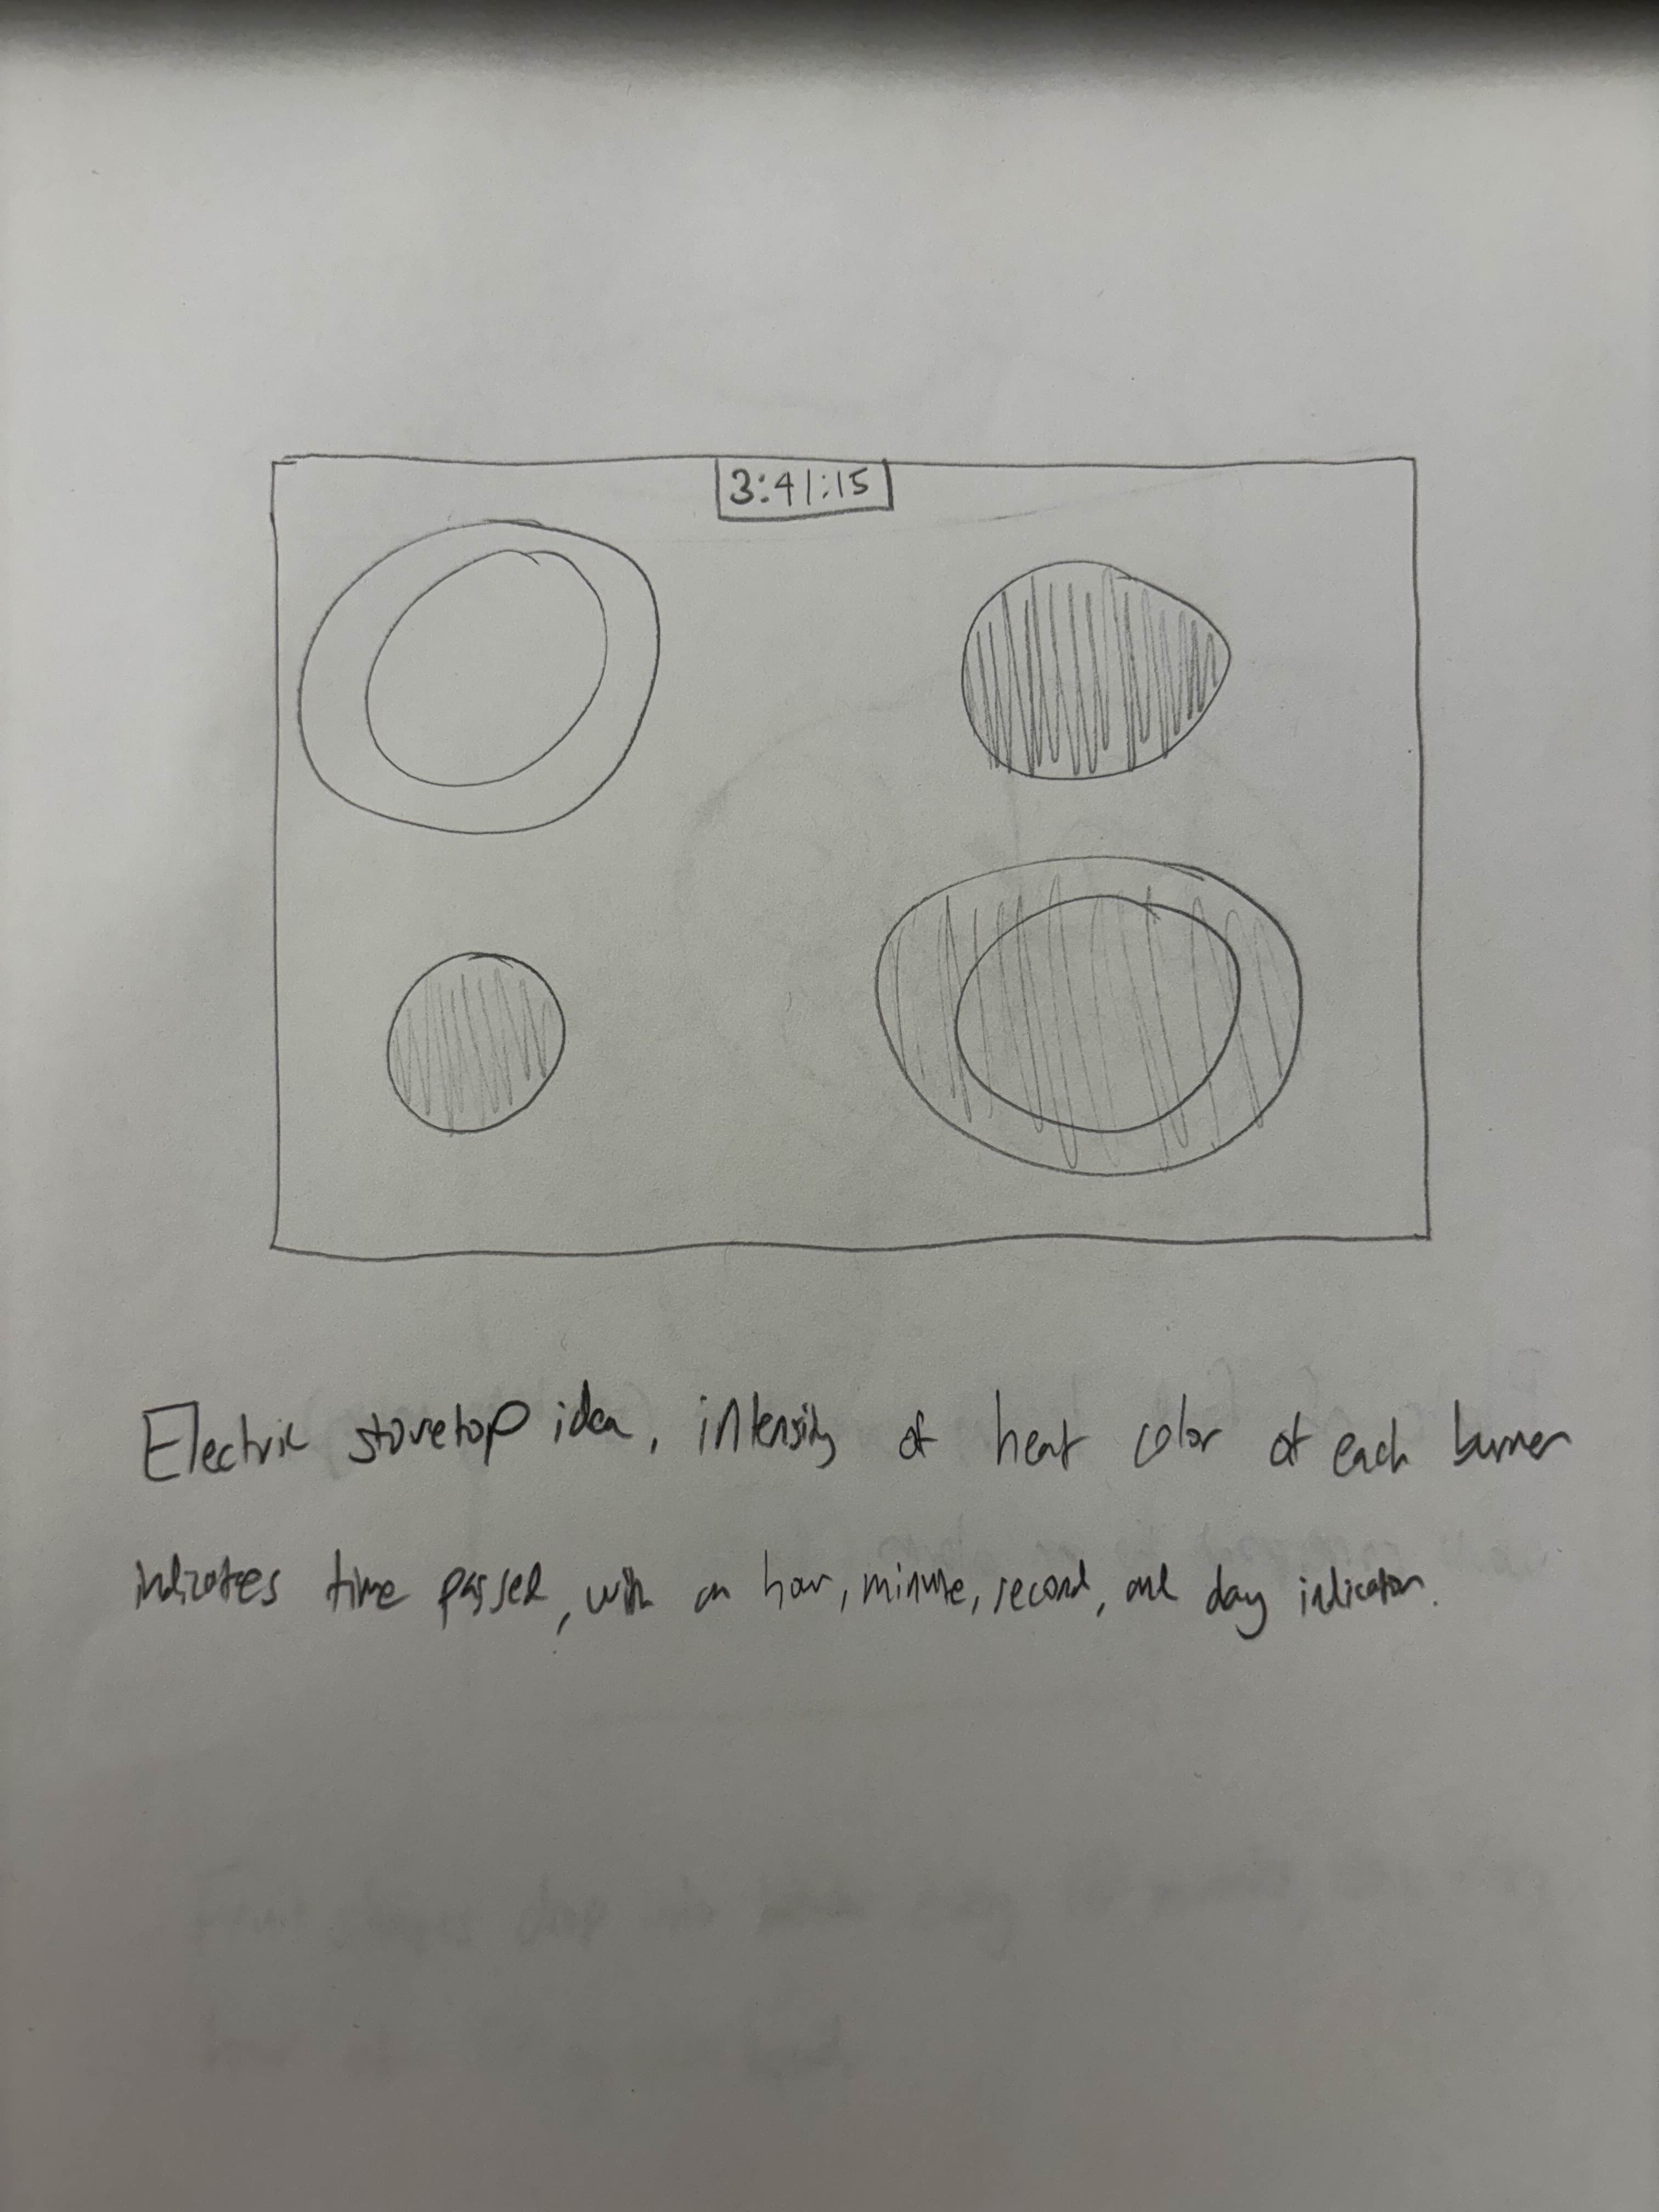 3:41:15
Electric stovetop idea, intensity of heat color of each burner
indicates time passed, with an hour, minute, second, and day indicator.